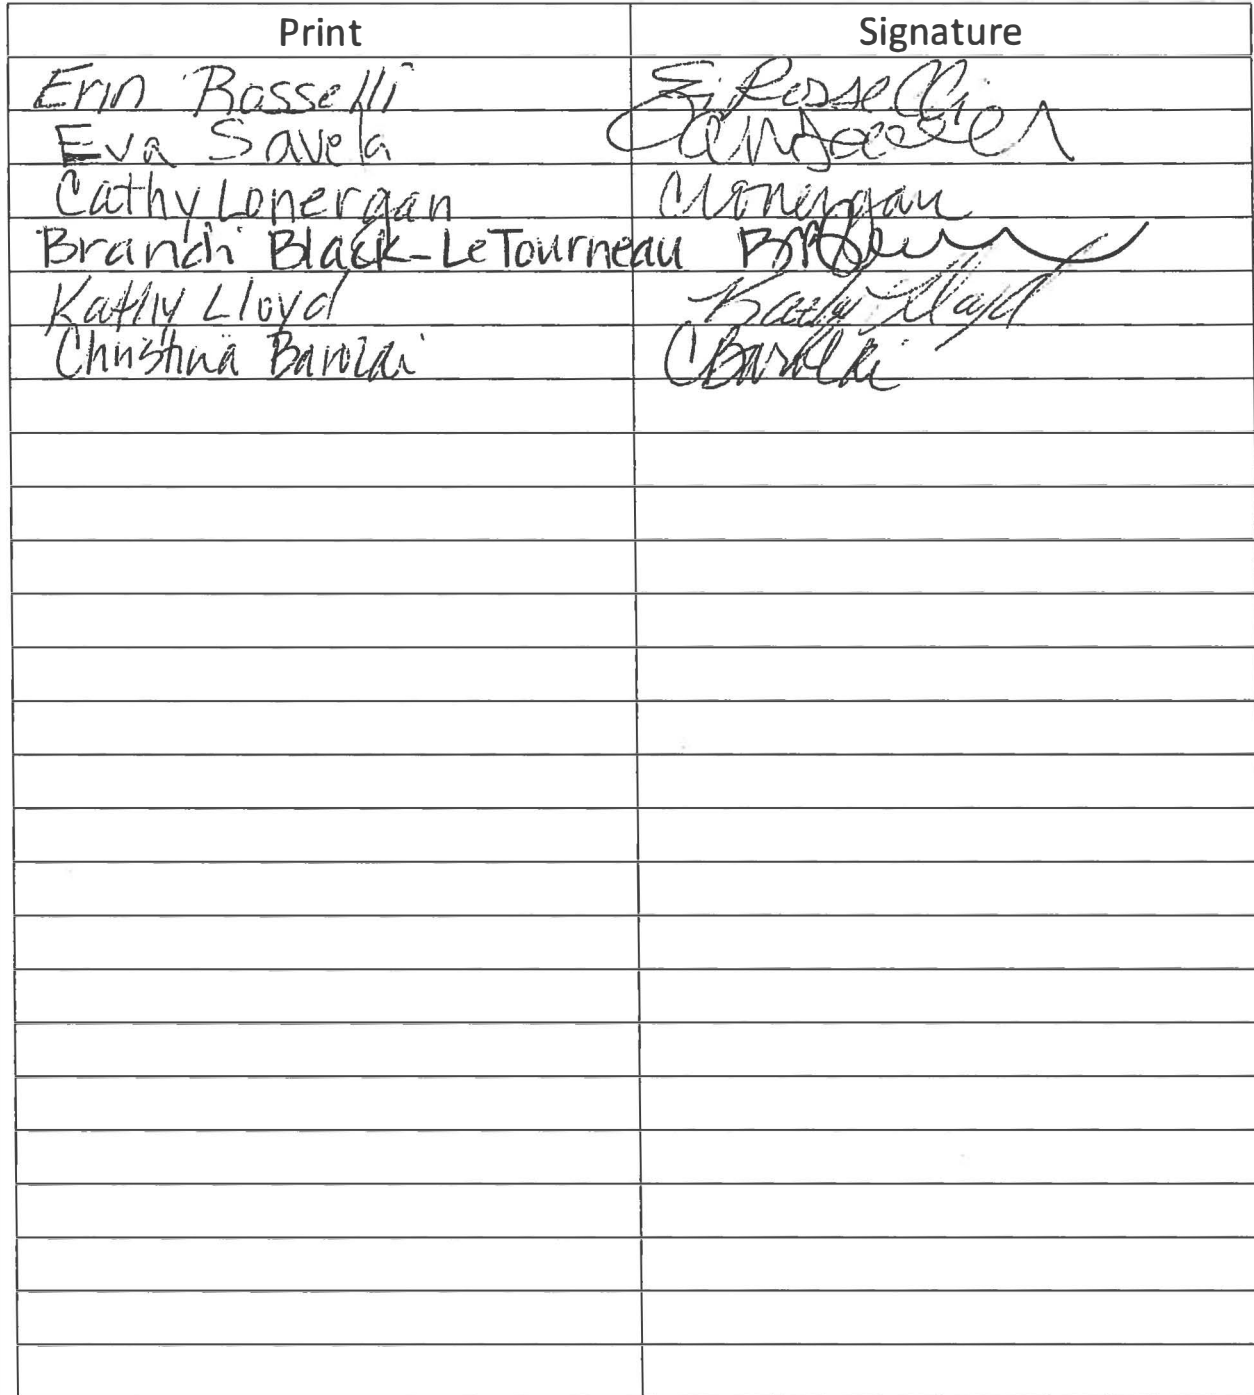 Print Signature
Erin Rosselli E. Rosselli
Eva Savela
Cathy Lonergan CLonergan
Brandi Black-LeTourneau
Kathy Lloyd Kathy Lloyd
Christina Barolai CBarolai